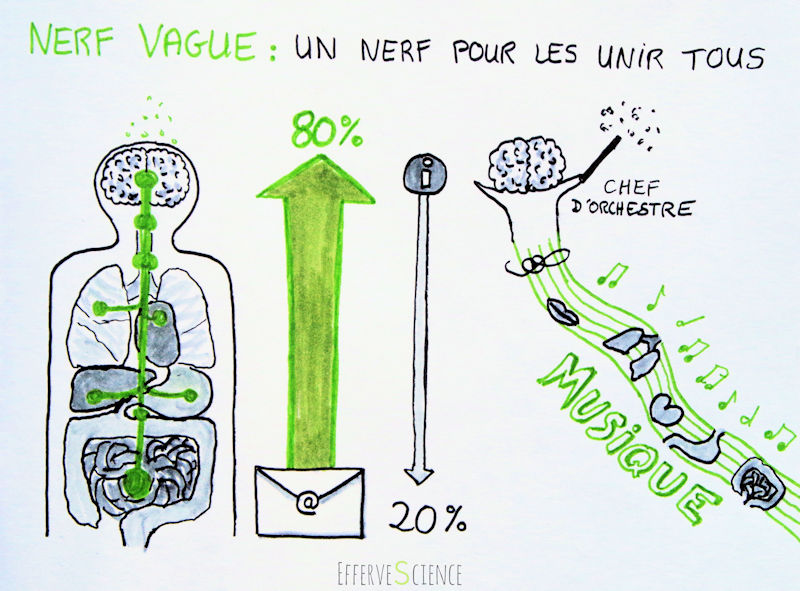 NERF VAGUE : UN NERF POUR LES UNIR TOUS
80%
i
CHEF
D'ORCHESTRE
MUSIQUE
@
20%
EFFERVESCIENCE